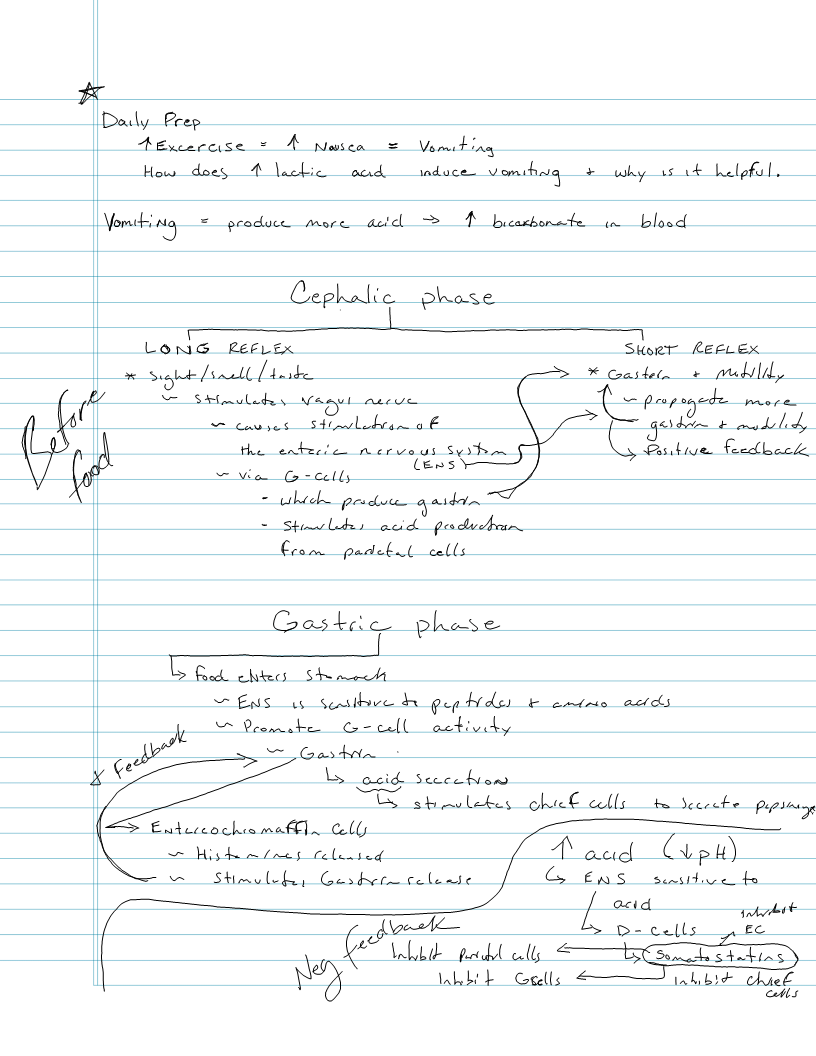 Daily Prep
↑ Excercise = ↑ Nausea = Vomiting
How does ↑ lactic acid induce vomiting + why is it helpful.
Vomiting = produce more acid → ↑ bicarbonate in blood
Cephalic phase
LONG REFLEX
* Sight/smell/taste
~ stimulates vagus nerve
~ causes stimulation of
the enteric nervous system
(ENS)
~ via G-cells
- which produce gastrin
- stimulates acid production
from parietal cells
Before
food
SHORT REFLEX
* Gastrin + motility
~ propogate more
gastrin + modility
↳ Positive feedback
Gastric phase
↳ food enters stomach
~ ENS is sensitive to peptides + amino acids
~ Promote G-cell activity
~ Gastrin
↳ acid secretion
↳ stimulates chief cells to secrete
+ Feedback
→ Entereochromaffin cells
~ Histamines released
~ Stimulates Gastrin release
↑ acid (↓pH)
↳ ENS sensitive to
acid
↳ D-cells
↳ Somatostatins
inhibit
EC
Neg feedback
Inhibit parietal cells
Inhibit Gcells
Inhibit chief
cells